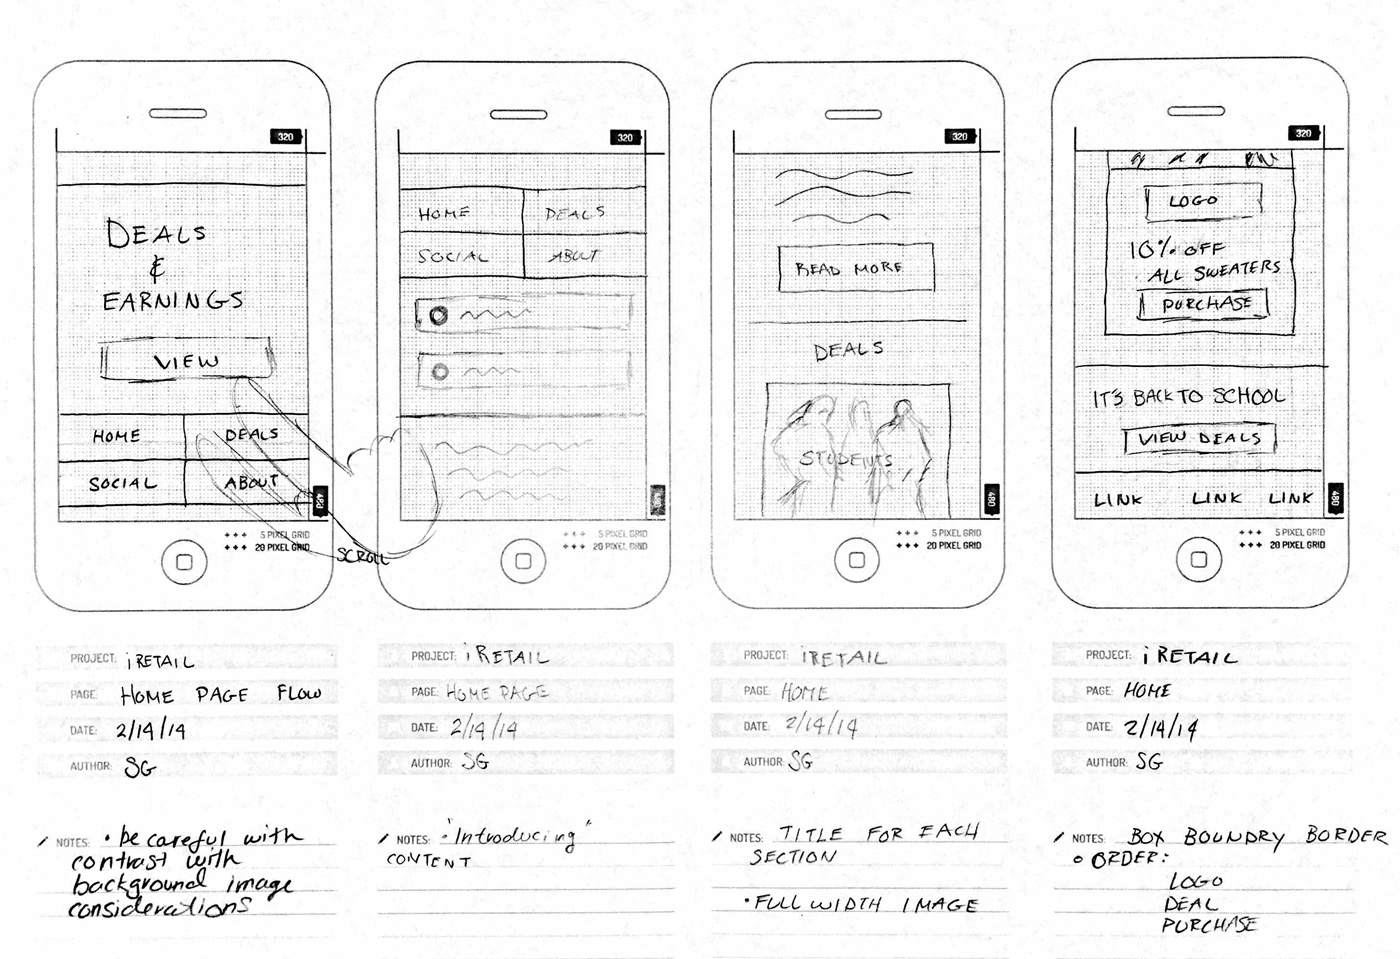 320
DEALS
&
EARNINGS
VIEW
HOME DEALS
SOCIAL ABOUT
480
5 PIXEL GRID
20 PIXEL GRID
SCROLL
PROJECT: iRETAIL
PAGE: HOME PAGE FLOW
DATE: 2/14/14
AUTHOR: SG
NOTES: • be careful with
contrast with
background image
considerations
320
HOME DEALS
SOCIAL ABOUT
480
5 PIXEL GRID
20 PIXEL GRID
PROJECT: iRETAIL
PAGE: HOME PAGE
DATE: 2/14/14
AUTHOR: SG
NOTES: • "Introducing"
CONTENT
320
READ MORE
DEALS
STUDENTS
480
5 PIXEL GRID
20 PIXEL GRID
PROJECT: iRETAIL
PAGE: HOME
DATE: 2/14/14
AUTHOR: SG
NOTES: TITLE FOR EACH
SECTION
• FULL WIDTH IMAGE
320
LOGO
10% OFF
ALL SWEATERS
PURCHASE
IT'S BACK TO SCHOOL
VIEW DEALS
LINK LINK LINK
480
5 PIXEL GRID
20 PIXEL GRID
PROJECT: iRETAIL
PAGE: HOME
DATE: 2/14/14
AUTHOR: SG
NOTES: BOX BOUNDRY BORDER
○ ORDER:
LOGO
DEAL
PURCHASE